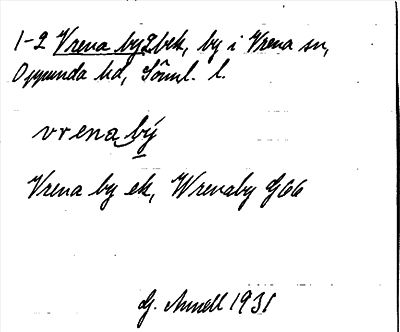 1-2 Vrena by 2 bek, by i Vrena sn,
Oppunda hd, Söml. l.
vrena bý
Vrena by ek, Wrenaby G66
G. Annell 1931